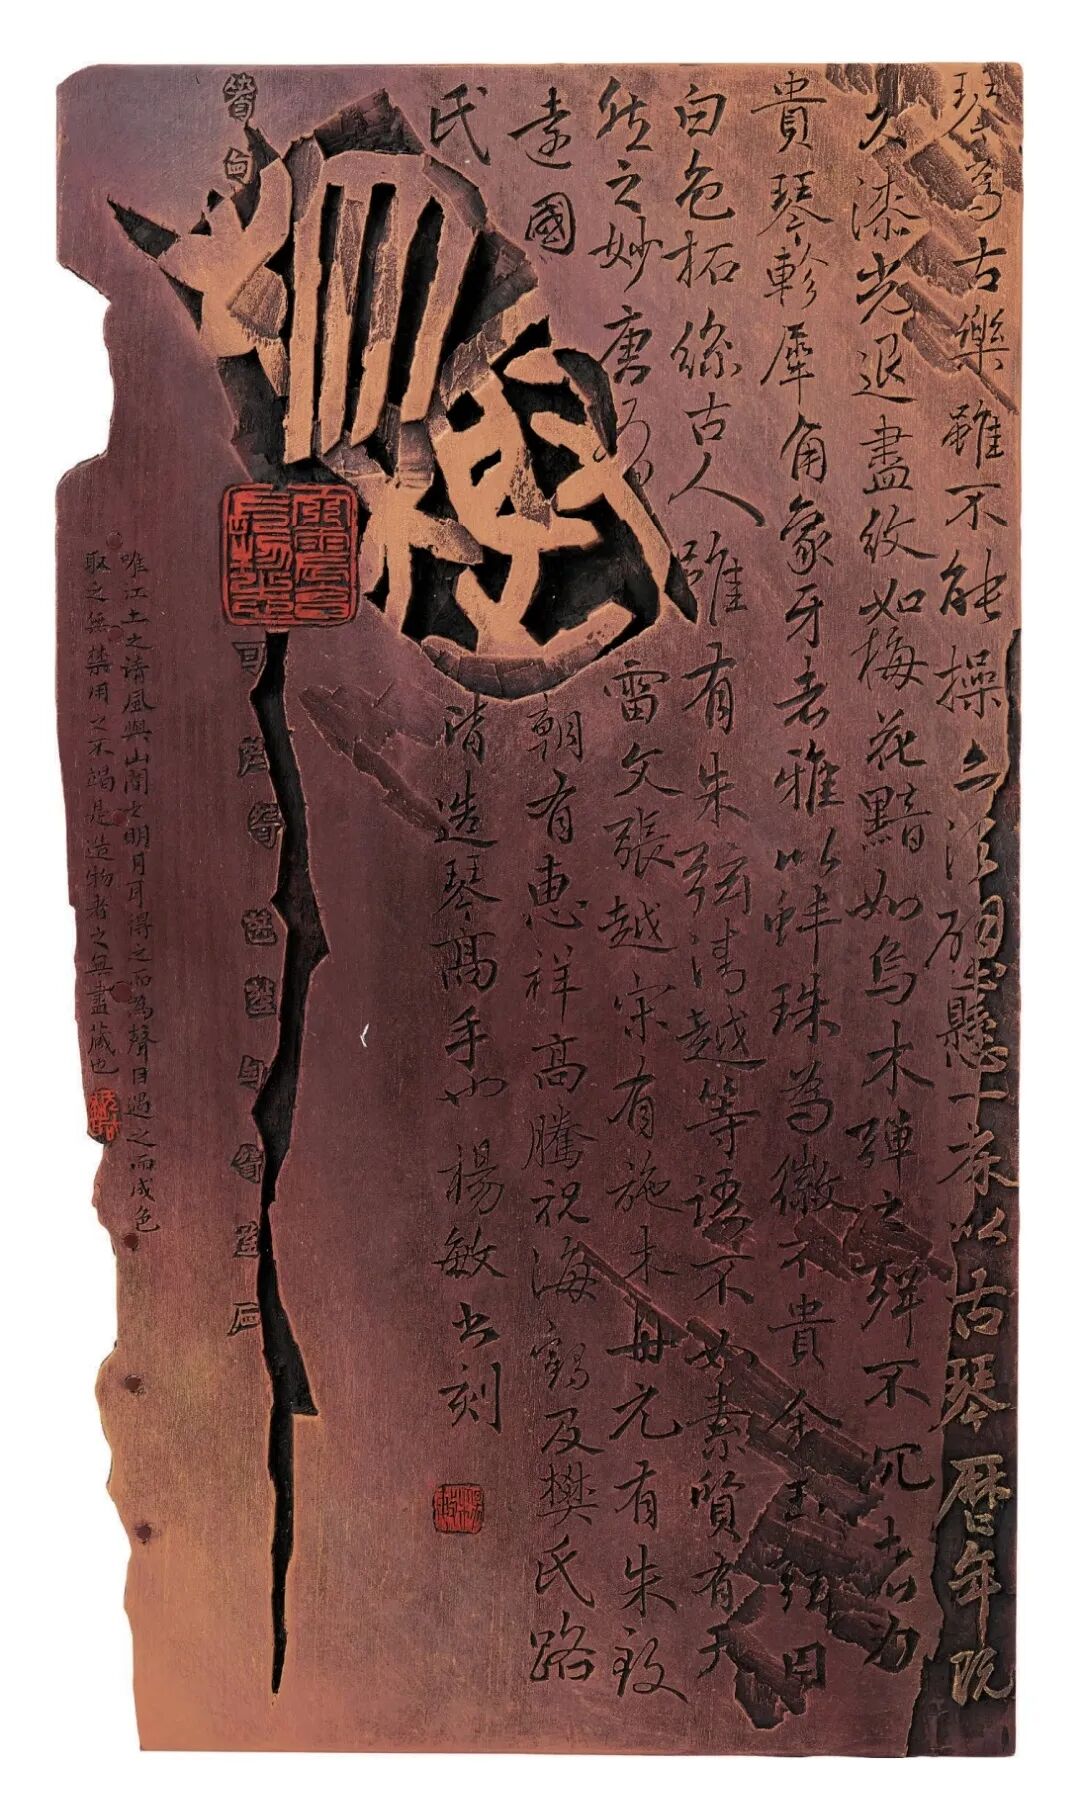 琴為古樂雖不能操亦須壁懸一床以古琴歷年既
久漆光退盡紋如梅花黯如烏木彈之聲不沉者為
貴琴軫犀角象牙者雅以蚌珠為徽不貴金玉弦用
白色柘絲古人雖有朱弦清越等語不如素質有天
然之妙唐有雷文張越宋有施木舟元有朱致
遠國朝有惠祥高騰祝海鶴及樊氏路
氏皆造琴高手也 楊敏書刻
唯江上之清風與山間之明月耳得之而為聲目遇之而成色
取之無禁用之不竭是造物者之無盡藏也